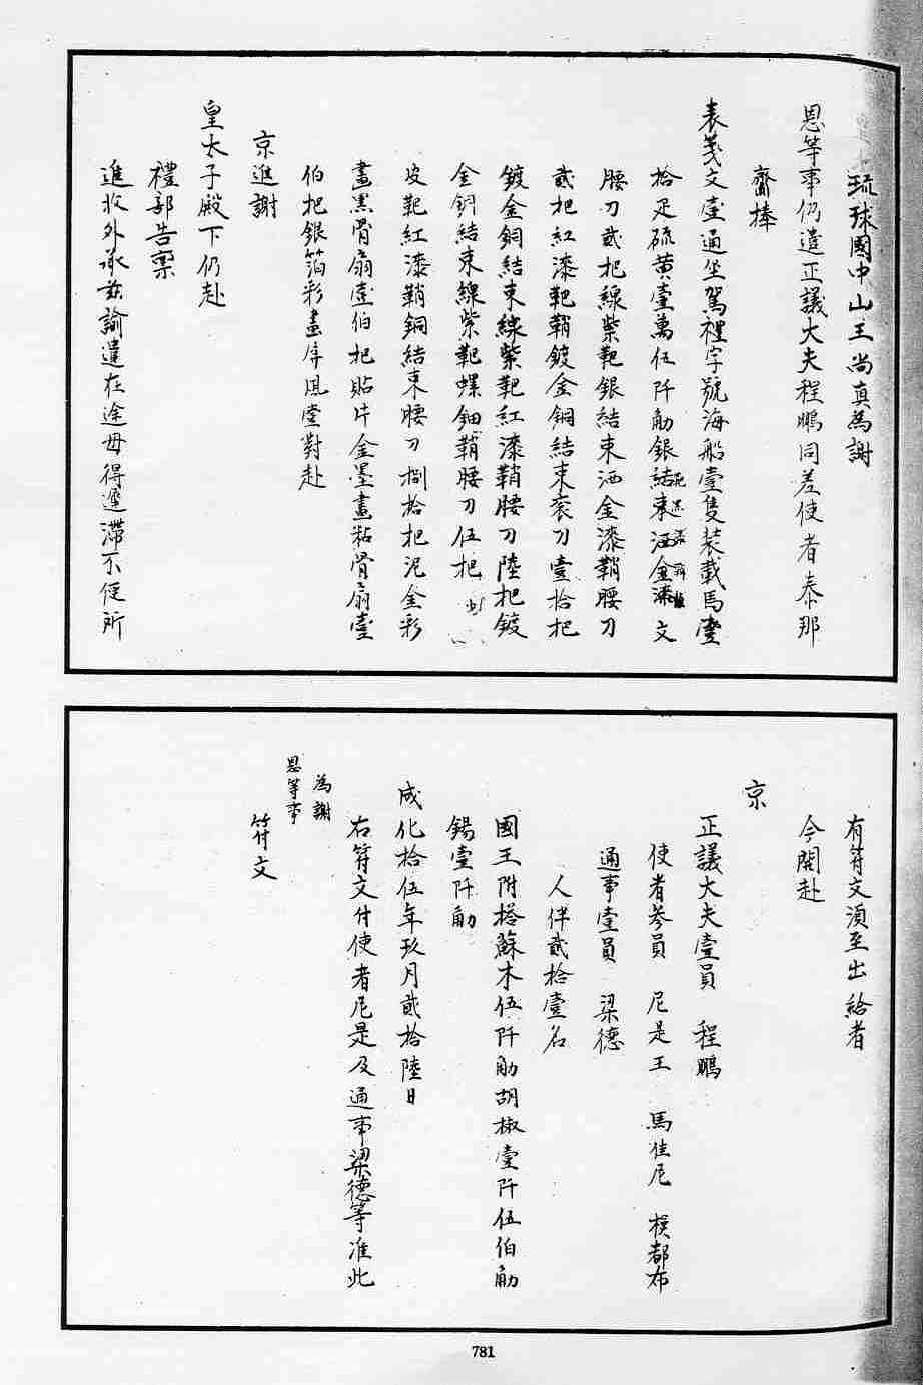 琉球國中山王尚真為謝
恩等事仍遣正議大夫程鵬同差使者泰那
齎捧
表箋文壹通坐駕禮字號海船壹隻裝載馬壹
拾疋硫黃壹萬伍阡觔銀結束洒金漆 文
腰刀貳把線紫靶銀結束洒金漆鞘腰刀
貳把紅漆靶鞘鍍金銅結束衮刀壹拾把
鍍金銅結束線紫靶紅漆鞘腰刀陸把鍍
金銅結束線紫靶螺鈿鞘腰刀伍把
皮靶紅漆鞘銅結束腰刀捌拾把泥金彩
畫黑骨扇壹伯把貼片金墨畫粘骨扇壹
伯把銀箔彩畫屏風壹對赴
京進謝
皇太子殿下仍赴
禮部告稟
進收外承茲諭遣在途毋得遲滯不便所
有符文須至出給者
今開赴
京
正議大夫壹員 程鵬
使者叄員 尼是王 馬佳尼 模都布
通事壹員 梁德
人伴貳拾壹名
國王附搭蘇木伍阡觔胡椒壹阡伍伯觔
錫壹阡觔
成化拾伍年玖月貳拾陸日
右符文付使者尼是及通事梁德等准此
為謝
恩等事
符文
781